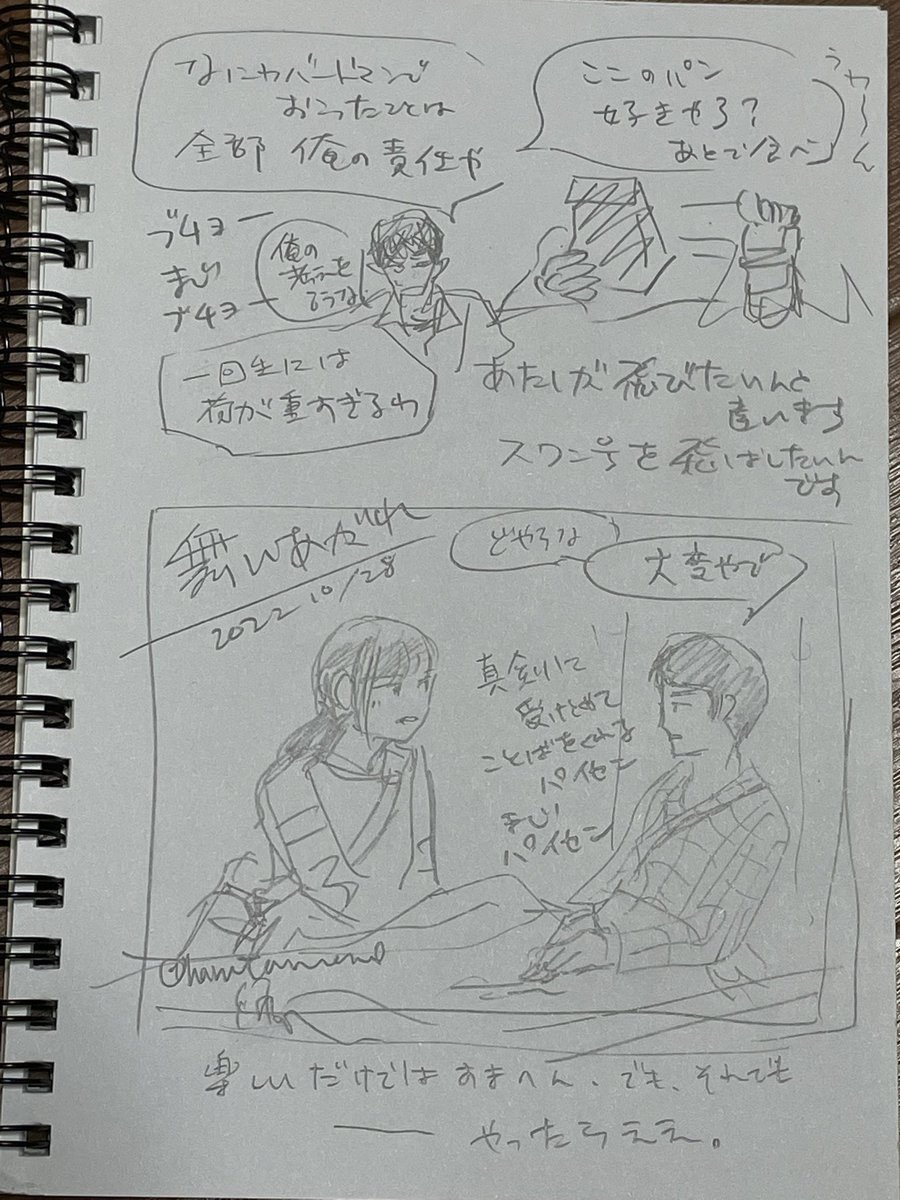 なにわバードマンで
おこったことは
全部 俺の責任や
ここのパン
好きやろ?
あとで食べ
うわーん
ブチョー
まじ
ブチョー
俺の
一回生には
荷が重すぎるわ
あたしが飛びたいんと
違います
スワン号を飛ばしたいん
です
舞いあがれ
2022 10/28
どやろな
大変やで
真剣に
受けとめて
ことばをくれる
パイセン
まじ
パイセン
楽しいだけではすまへん、でも、それでも
── やったらええ。